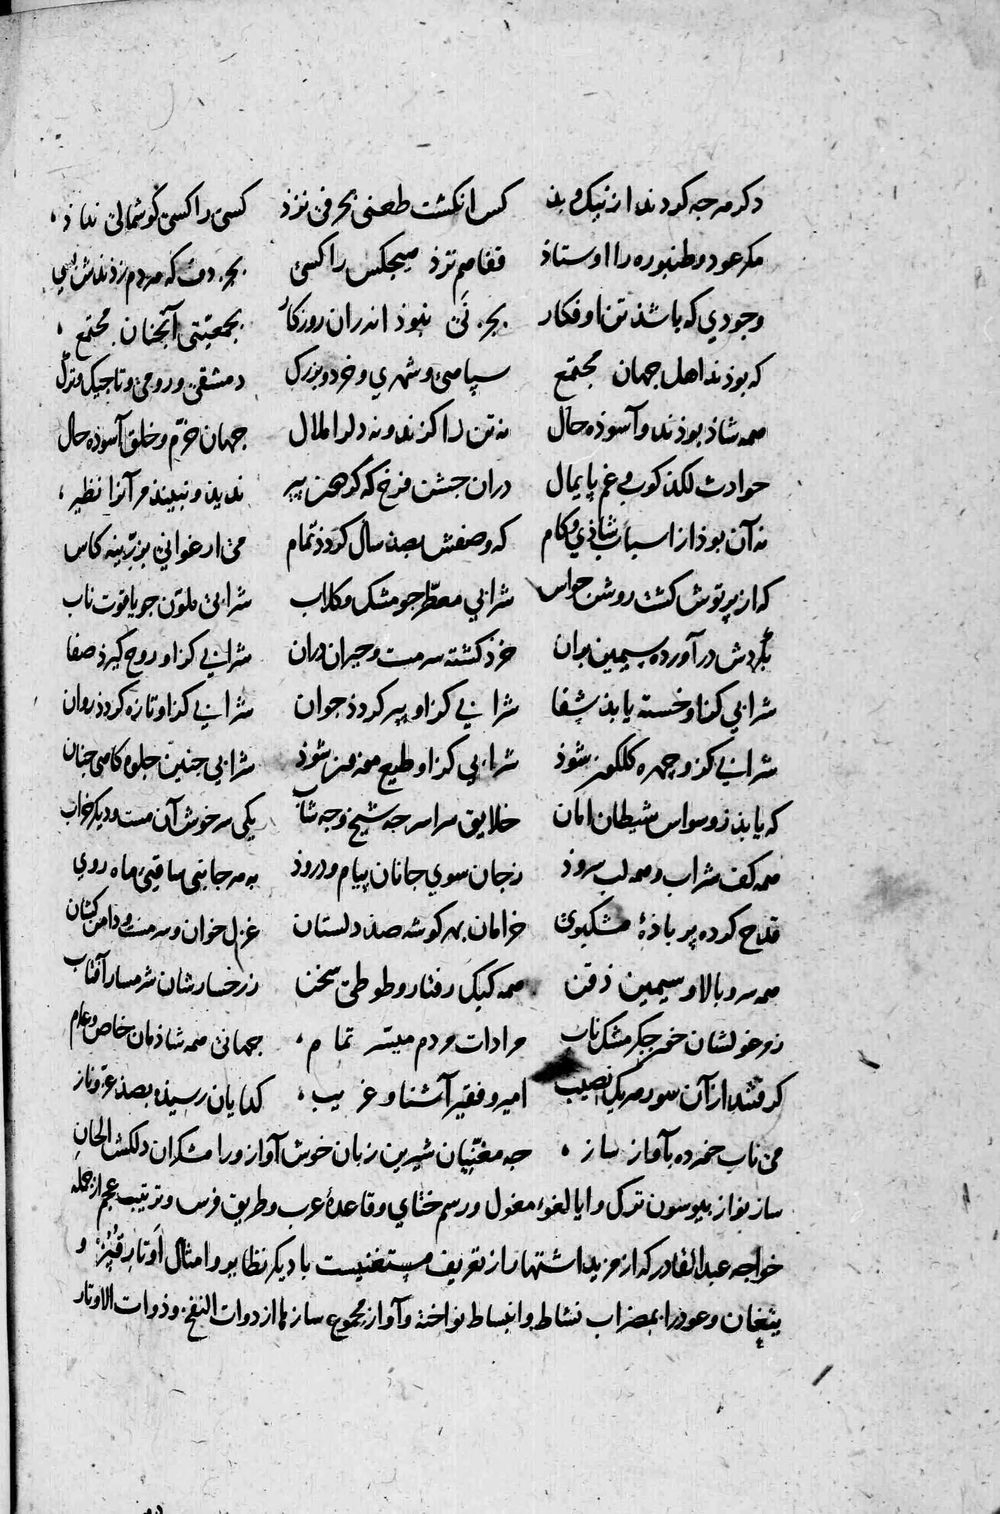 دکر هرجه کردند از نیک و بد کس انکشت طعنی بحرفی نزد کسی را کسی کوشمالی نداذ
مکر عود و طنبوره را اوستاذ قفا هم نزذ هیجکس را کسی بجز دف که مردم زذندش بسی
وجودی که باشذ تن او فکار بجز نی نبوذ اندران روزکار بجمعیتی آنجنان مجتمع
که بوذند اهل جهان مجتمع سپاهی و شهری و خرد و بزرک دمشقی و رومی و تاجیک و ترک
همه شاذ بوذند و آسوذه حال نه تن را کزند و نه دل را ملال جهان خرّم و خلق آسوذه حال
حوادث لکدکوب غم پایمال دران جشن فرخ که کوهر پیر ندید و نبیند مر آنرا نظیر
نه آن بوذ از اسباب شاذی و کام که وصفش بصد سال کردذ تمام می ارغوانی بزرّینه کاس
که از پرتوش کشت روشن حواس شرابی معطّر جو مشک و کلاب شرابی ملوّن جو یاقوت ناب
بکردش در آورده سیمین بران خرذ کشته سرمست و حیران دران شرابی کزاو روح کیرذ صفا
شرابی کزاو خسته یابذ شفا شرابی کزاو پیر کردذ جوان شرابی کزاو تازه کردذ روان
شرابی کزو چهره کلکون شوذ شرابی کزاو طبع موزون شوذ شرابی جنین جلوه کاهی جنان
که یابذ ز وسواس شیطان امان خلایق سراسر جه شیخ و جه شاب یکی سرخوش آن مست و دیکر خراب
همه کف شراب و همه لب سروذ ز جان سوی جانان پیام و دروذ به هر جانبی ساقیی ماه روی
قدح کرده پر باذۀ مشکبوی خرامان بهر کوشه صذ دلستان غزل خوان و سرمست و دامن کشان
همه سرو بالا و سیمین ذقن همه کبک رفتار و طوطی سخن ز رخسارشان شرمسار آفتاب
ز مرغولشان خون جکر مشک ناب مرادات مردم میسّر تمام جهانی همه شاذمان خاص و عام
کرفتند از آن سور هریک نصیب امیر و فقیر آشنا و غریب کدایان رسیذه بصذ عز و ناز
می ناب خورده بآواز ساز جه مغنّیان شیرین زبان خوش آواز و رامشکران دلکش الحان
ساز نواز بیوسون ترک و ایالغوء مغول و رسم ختای و قاعدۀ عرب و طریق فرس و ترتیب عجم از جمله
خواجه عبدالقادر که از مزید اشتهار از تعریف مستغنیست با دیکر نظایر و امثال اوتار قپز و
یتغان و عود را بمضراب نشاط و انبساط نواخته و آواز مجموع سازها از ذوات النفخ و ذوات الاوتار